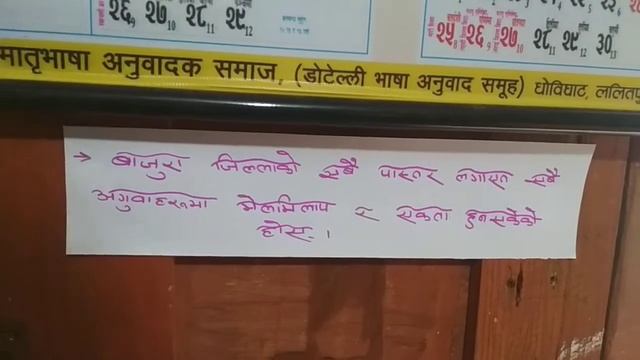 २६९ २७१० २८११ २९१२
२५८ २६९ २७१० २८११ २९१२ ३०१३
मातृभाषा अनुवादक समाज, (डोटेल्ली भाषा अनुवाद समूह) धोविघाट, ललितप
→ बाजुरा जिल्लाको सबै पास्टर लगाएत सबै
अगुवाहरूमा मेलमिलाप र एकता हुनसकेको
होस् ।